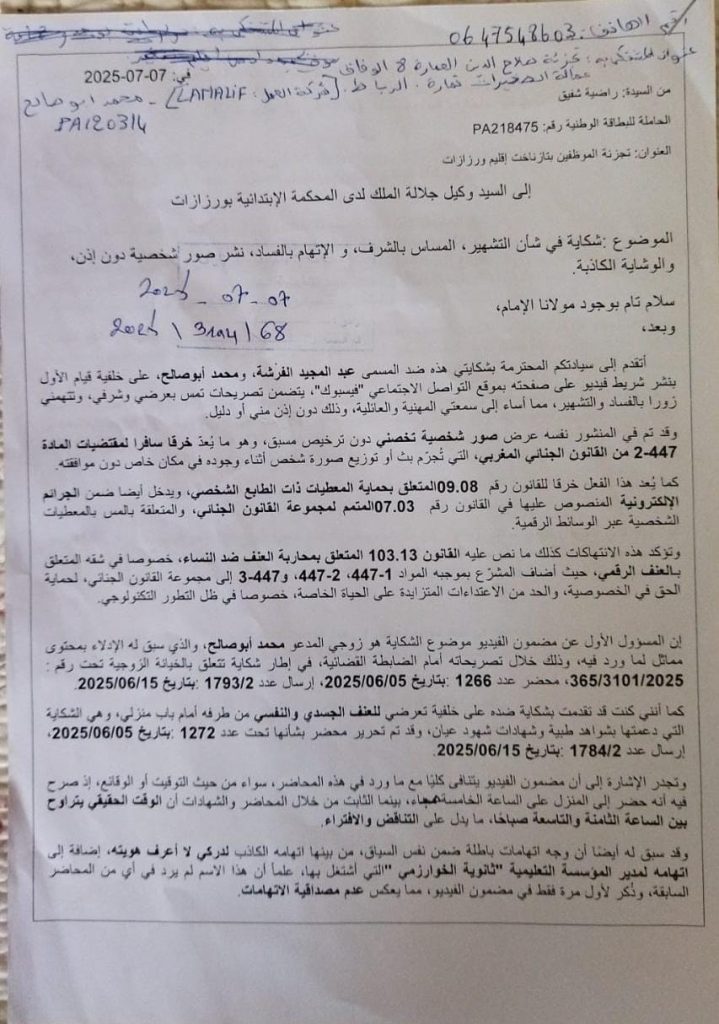 رقم الهاتف: 0647548603
عنوان المشتكى به: تجزئة صلاح الدين العمارة 8 الوفاق
عمالة الصخيرات تمارة. الرباط. [شركة العمل: LAMALIF] - محمد ابو صالح
PA120314
في: 07-07-2025
من السيدة: راضية شفيق
الحاملة للبطاقة الوطنية رقم: PA218475
العنوان: تجزئة الموظفين بتازناخت إقليم ورزازات
إلى السيد وكيل جلالة الملك لدى المحكمة الإبتدائية بورزازات
الموضوع :شكاية في شأن التشهير، المساس بالشرف، و الإتهام بالفساد، نشر صور شخصية دون إذن،
والوشاية الكاذبة.
سلام تام بوجود مولانا الإمام،
وبعد،
2025 - 07 - 07
2025 \ 3101 \ 68
أتقدم إلى سيادتكم المحترمة بشكايتي هذه ضد المسمى عبد المجيد الفرشة، ومحمد أبوصالح، على خلفية قيام الأول
بنشر شريط فيديو على صفحته بموقع التواصل الاجتماعي "فيسبوك"، يتضمن تصريحات تمس بعرضي وشرفي، وتتهمني
زورا بالفساد والتشهير، مما أساء إلى سمعتي المهنية والعائلية، وذلك دون إذن مني أو دليل.
وقد تم في المنشور نفسه عرض صور شخصية تخصني دون ترخيص مسبق، وهو ما يُعدّ خرقا سافرا لمقتضيات المادة
447-2 من القانون الجنائي المغربي، التي تُجرّم بث أو توزيع صورة شخص أثناء وجوده في مكان خاص دون موافقته.
كما يُعد هذا الفعل خرقا للقانون رقم 09.08المتعلق بحماية المعطيات ذات الطابع الشخصي، ويدخل أيضا ضمن الجرائم
الإلكترونية المنصوص عليها في القانون رقم 07.03المتمم لمجموعة القانون الجنائي، والمتعلقة بالمس بالمعطيات
الشخصية عبر الوسائط الرقمية.
وتؤكد هذه الانتهاكات كذلك ما نص عليه القانون 103.13 المتعلق بمحاربة العنف ضد النساء، خصوصا في شقه المتعلق
بـالعنف الرقمي، حيث أضاف المشرّع بموجبه المواد 1-447، 2-447، و3-447 إلى مجموعة القانون الجنائي، لحماية
الحق في الخصوصية، والحد من الاعتداءات المتزايدة على الحياة الخاصة، خصوصا في ظل التطور التكنولوجي.
إن المسؤول الأول عن مضمون الفيديو موضوع الشكاية هو زوجي المدعو محمد أبوصالح، والذي سبق له الإدلاء بمحتوى
مماثل لما ورد فيه، وذلك خلال تصريحاته أمام الضابطة القضائية، في إطار شكاية تتعلق بالخيانة الزوجية تحت رقم :
365/3101/2025، محضر عدد 1266 :بتاريخ 2025/06/05، إرسال عدد 1793/2 :بتاريخ 2025/06/15.
كما أنني كنت قد تقدمت بشكاية ضده على خلفية تعرضي للعنف الجسدي والنفسي من طرفه أمام باب منزلي، وهي الشكاية
التي دعمتها بشواهد طبية وشهادات شهود عيان، وقد تم تحرير محضر بشأنها تحت عدد 1272 :بتاريخ 2025/06/05،
إرسال عدد 1784/2 :بتاريخ 2025/06/15.
وتجدر الإشارة إلى أن مضمون الفيديو يتنافى كليًا مع ما ورد في هذه المحاضر، سواء من حيث التوقيت أو الوقائع، إذ صرح
فيه أنه حضر إلى المنزل على الساعة الخامسة مساء، بينما الثابت من خلال المحاضر والشهادات أن الوقت الحقيقي يتراوح
بين الساعة الثامنة والتاسعة صباحًا، ما يدل على التناقض والافتراء.
وقد سبق له أيضًا أن وجه اتهامات باطلة ضمن نفس السياق، من بينها اتهامه الكاذب لدركي لا أعرف هويته، إضافة إلى
اتهامه لمدير المؤسسة التعليمية "ثانوية الخوارزمي "التي أشتغل بها، علماً أن هذا الاسم لم يرد في أي من المحاضر
السابقة، وذُكر لأول مرة فقط في مضمون الفيديو، مما يعكس عدم مصداقية الاتهامات.